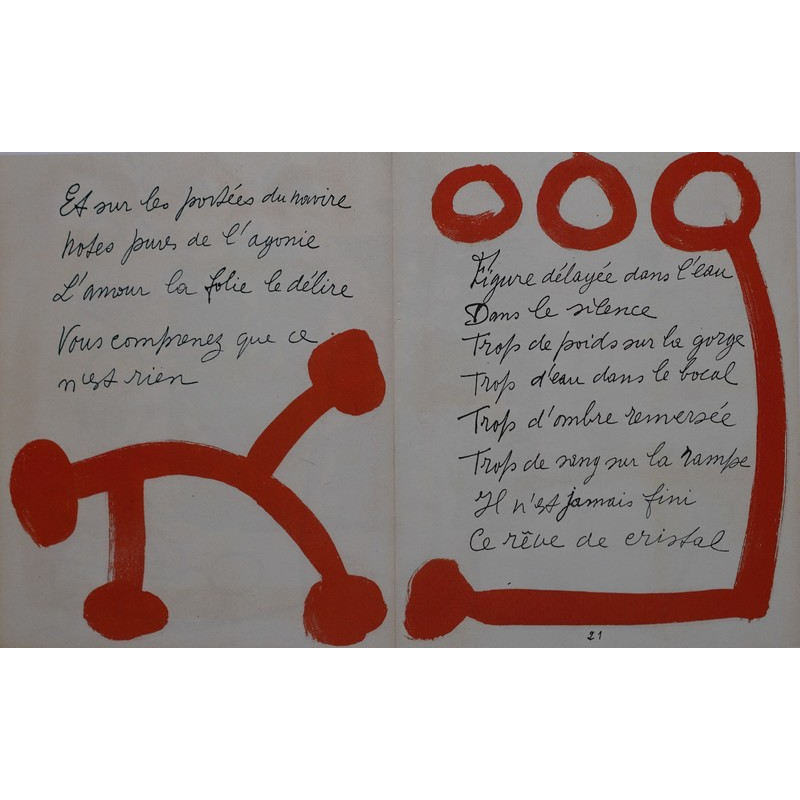 Et sur les portées du navire
Notes pures de l'agonie
L'amour la folie le délire
Vous comprenez que ce
n'est rien
Figure délayée dans l'eau
Dans le silence
Trop de poids sur la gorge
Trop d'eau dans le bocal
Trop d'ombre renversée
Trop de sang sur la rampe
Il n'est jamais fini
Ce rêve de cristal
21